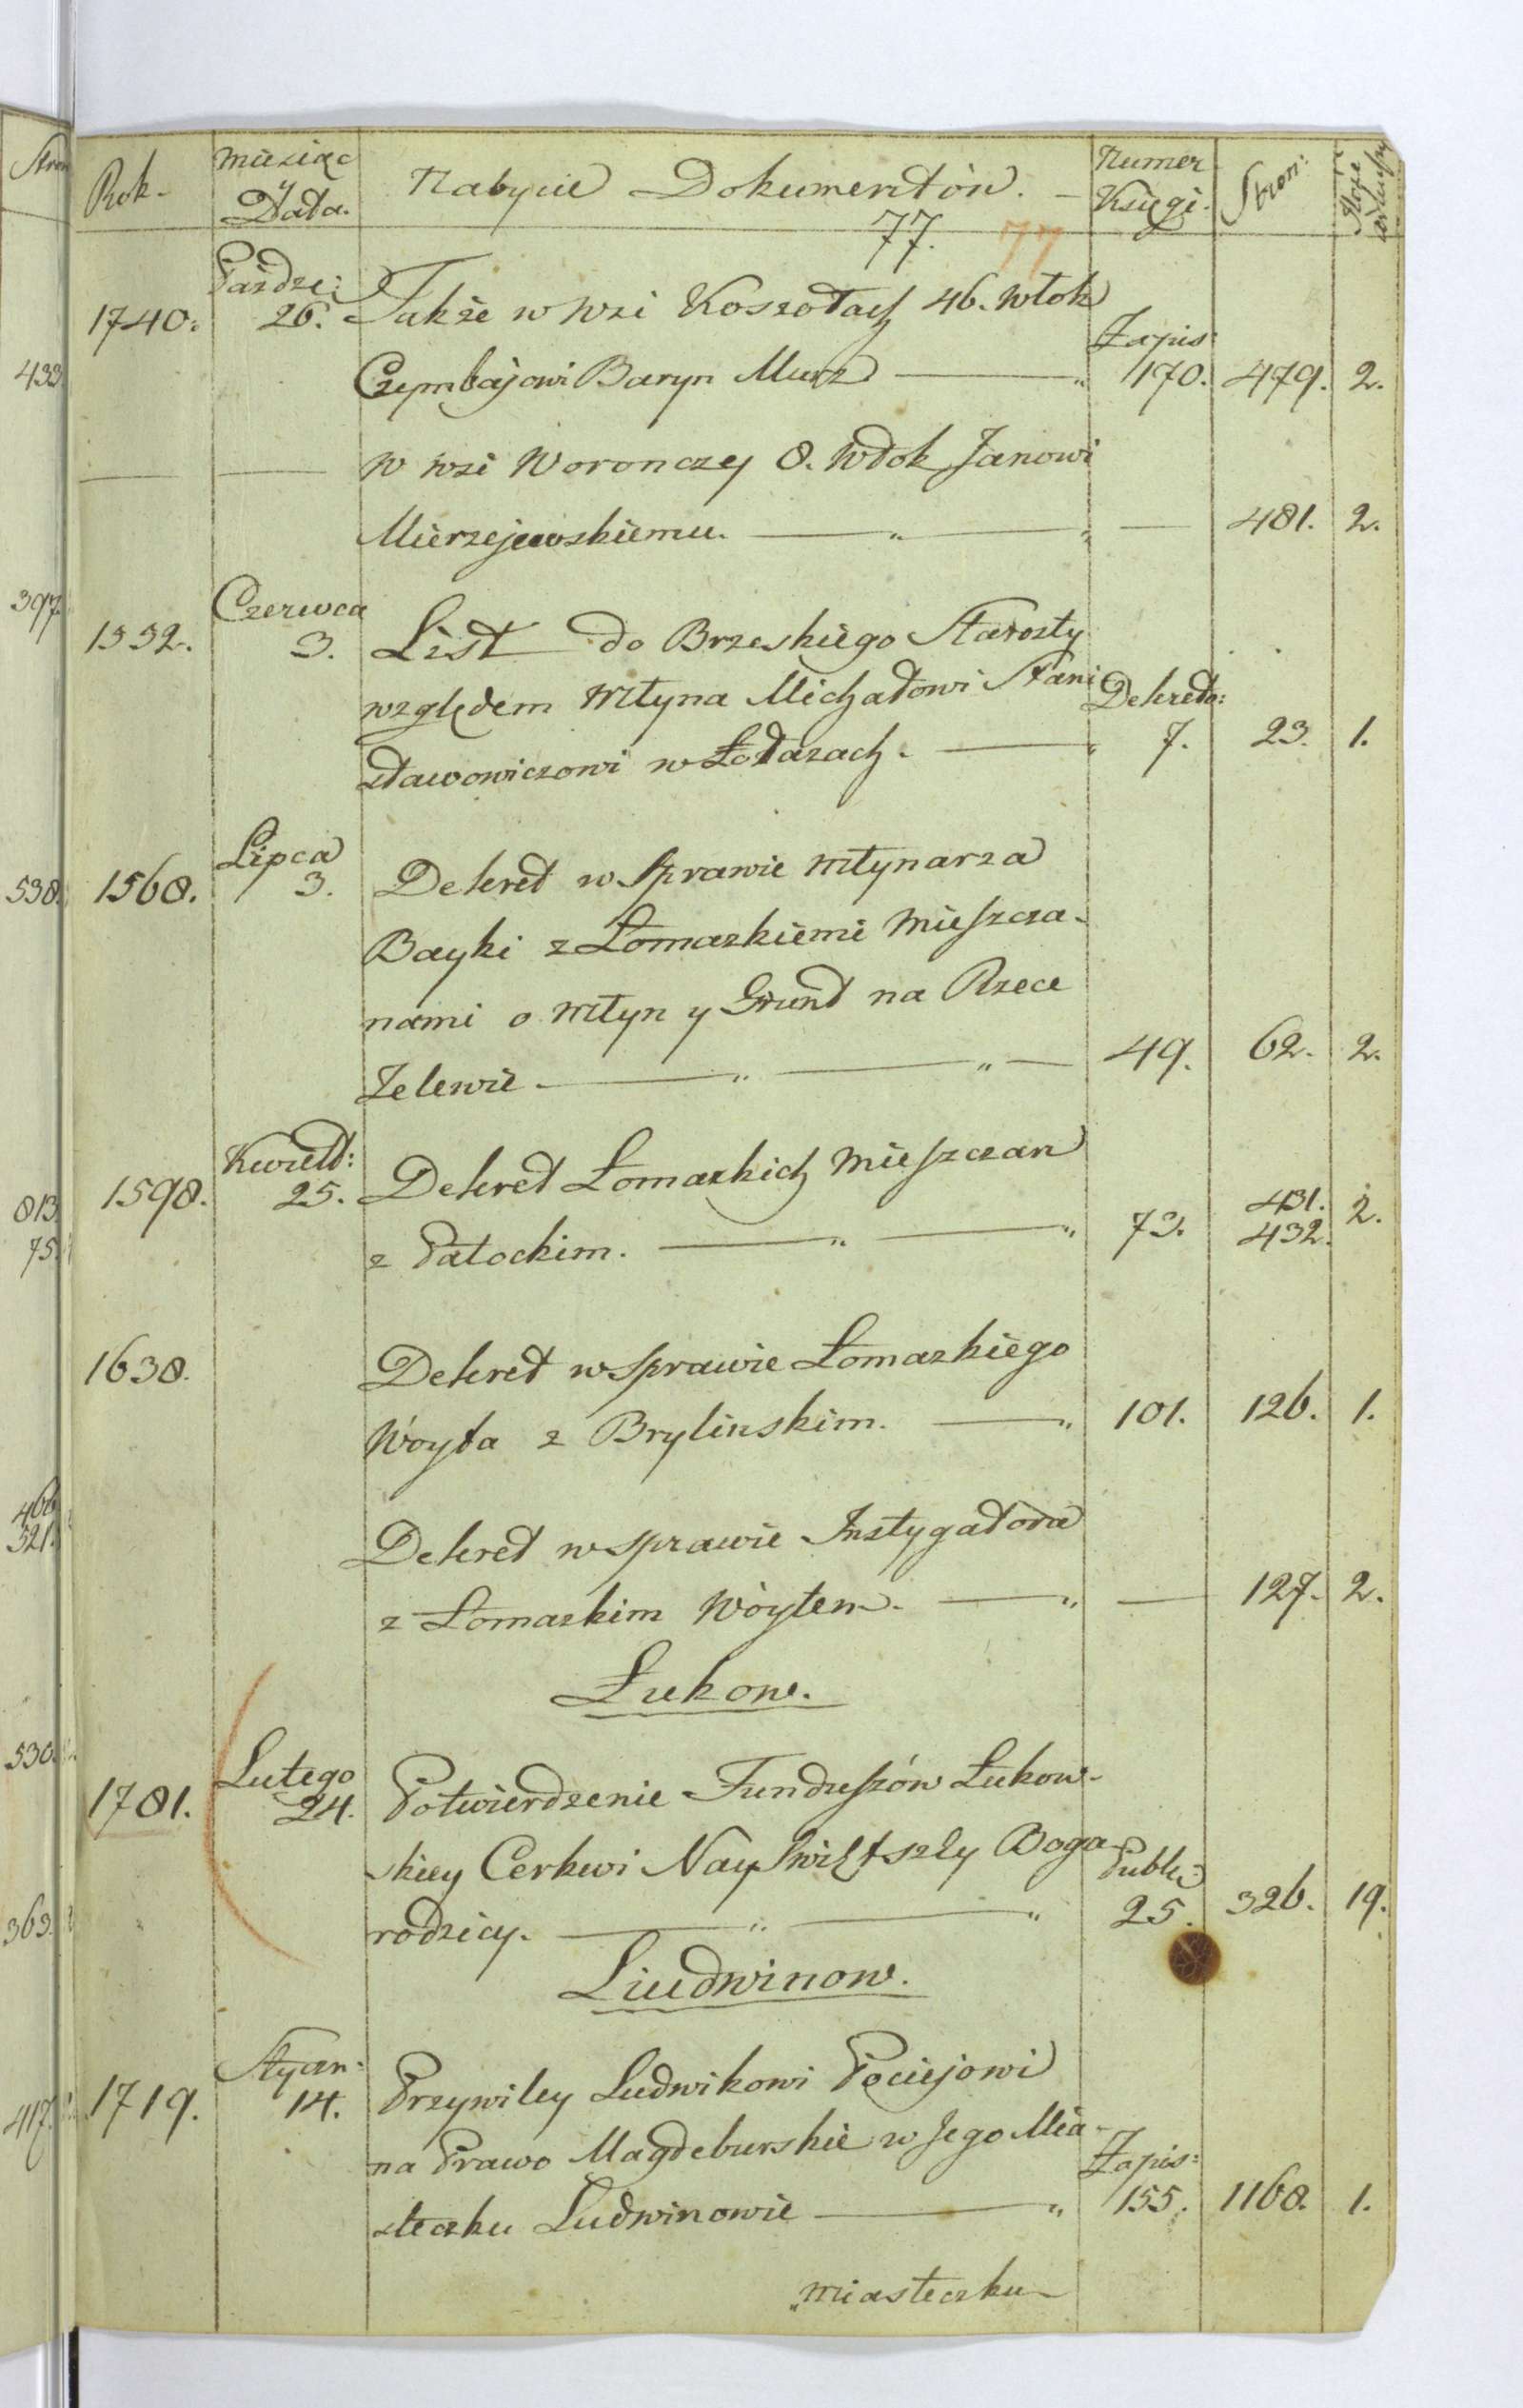 Stron
Rok.
Miesiąc
y
Data.
Nabycie Dokumentów.
Numer
Księgi.
Stron:
77. 77
1740.
Paźdze:
26.
Także w wsi Koszołach 46. Włok
Czymbajowi Baryn Murz
Zapis:
170. 479. 2.
433.
w wsi Woronczey 8. Włok Janowi
Mierzejewskiemu. 481. 2.
397.
1552.
Czerwca
3.
List do Brzeskiego Starosty
względem Młyna Michałowi Stani
sławowiczowi w Łotazach.
Dekreto:
7. 23. 1.
538.
1568.
Lipca
3.
Dekret w Sprawie Młynarza
Bayki z Łomazkiemi Mieszcza-
nami o Młyn y Grunt na Rzece
Zelewie. 49. 62. 2.
813.
75.
1598.
Kwiet:
25.
Dekret Łomazkich Mieszczan
z Patockim. 73. 431. 2.
432.
1638.
Dekret w Sprawie Łomazkiego
Woyta z Brylinskim. 101. 126. 1.
466
521.
Dekret w sprawie Instygatora
z Łomazkim Wóytem. 127. 2.
Łukow.
530.
1781.
Lutego
24.
Potwierdzenie Funduszów Łukow-
skiey Cerkwi Nayświętszey Boga
rodzicy.
Publi:
25. 326. 19.
363.
Liudwinow.
417.
1719.
Stycz:
14.
Przywiley Ludwikowi Pociejowi
na Prawo Magdeburskie w Jego Mia-
steczku Ludwinowie
Zapis:
155. 1168. 1.
Miasteczku